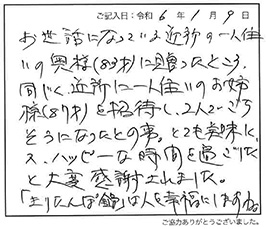 ご記入日：令和 6 年 1 月 9 日
お世話になっている近所の一人住
いの奥様(83才)に贈ったところ、
同じく近所に一人住いのお姉
様(87才)を招待し、2人でごち
そうになったとの事。とても美味し
く、ハッピーな時間を過ごした
と大変感謝されました。
は人を幸福にしますね。
ご協力ありがとうございました。